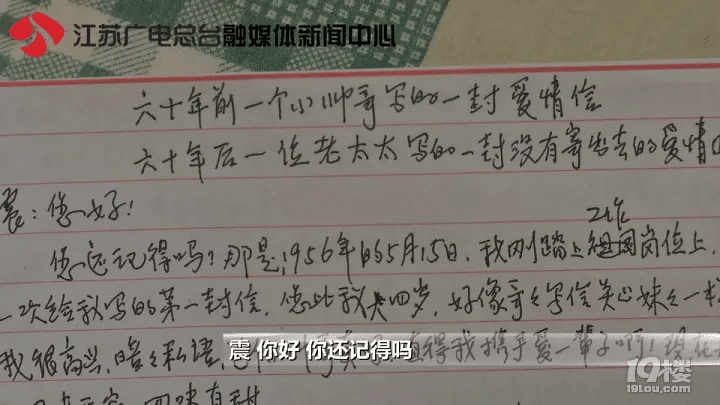 江苏广电总台融媒体新闻中心
六十年前一个小帅哥写的一封爱情信
六十年后一位老太太写的一封没有寄出去的爱情
震：您好！
工作
您还记得吗？那是1956年的5月15日，我刚踏上岗位上，
一次给我写的第一封信，您比我大四岁，好像哥々写信关心妹々一
我很高兴，暗々私语，得我携手爱一辈子啊！现在
震 你好 你还记得吗
回味有甜
19楼
19lou.com